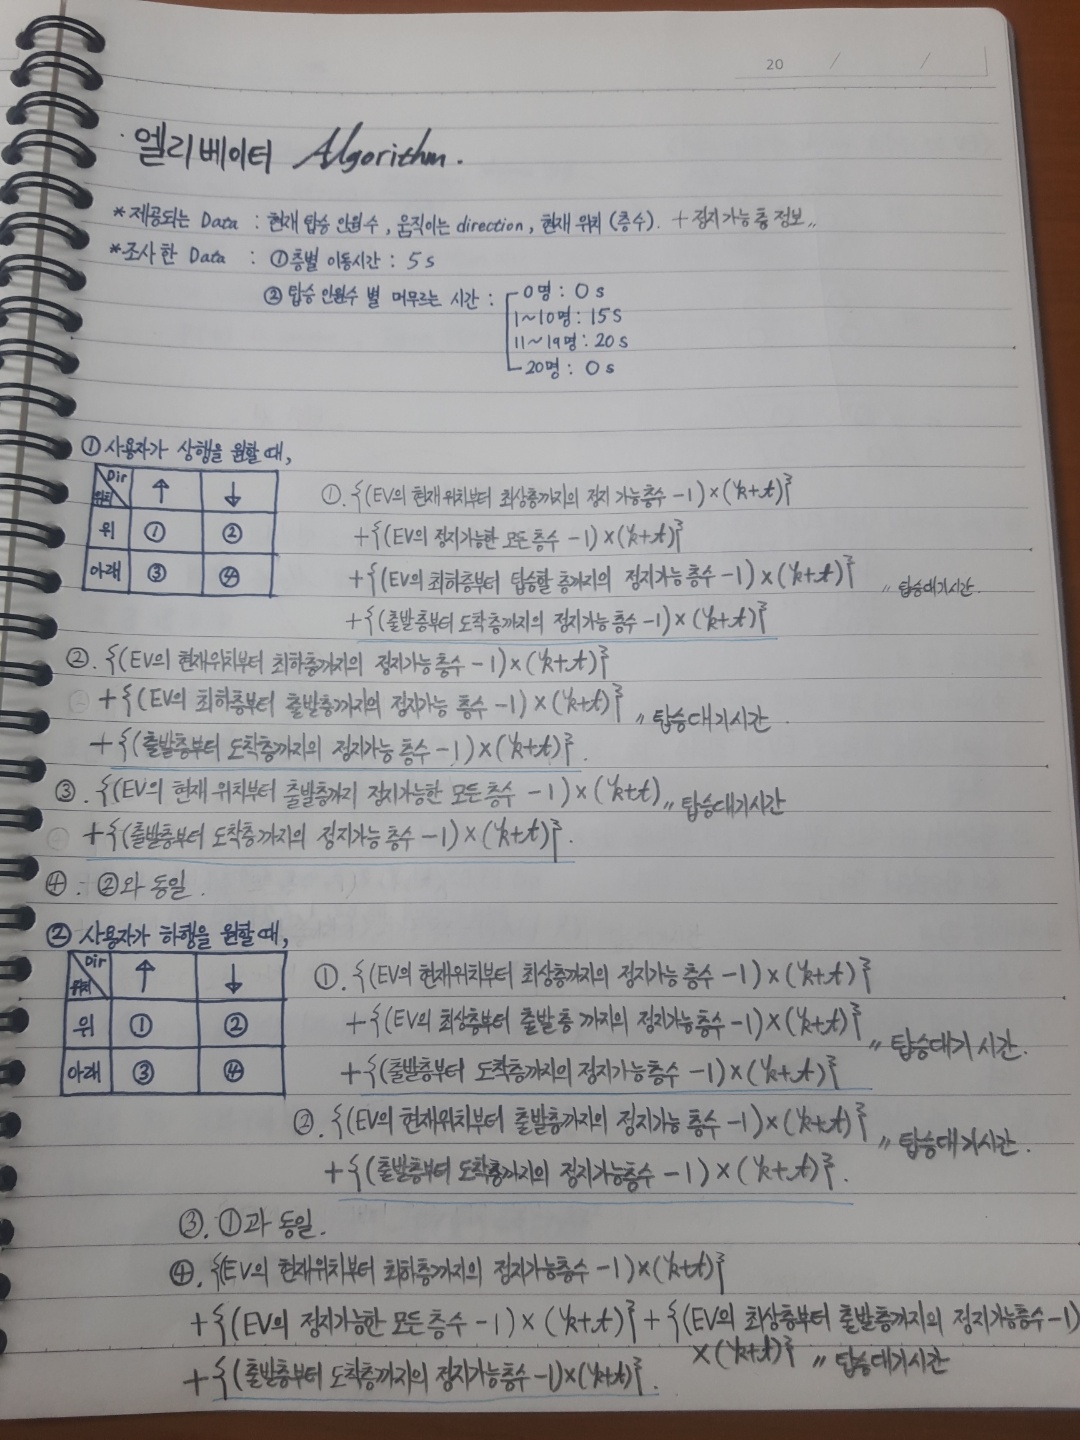 20 / /
· 엘리베이터 Algorithm.
*제공되는 Data : 현재 탑승 인원수, 움직이는 direction, 현재 위치 (층수). + 정지가능 층 정보,,
*조사한 Data : ①층별 이동시간 : 5s
② 탑승 인원수 별 머무르는 시간 : 0명 : 0s
1~10명 : 15s
11~19명 : 20s
20명 : 0s
① 사용자가 상행을 원할 때,
Dir 위치 ↑ ↓
위 ① ②
아래 ③ ④
①. {(EV의 현재위치부터 최상층까지의 정지 가능층수 -1)×(k+t)}
+{(EV의 정지가능한 모든층수 -1)×(k+t)}
+{(EV의 최하층부터 탑승할 층까지의 정지가능층수 -1)×(k+t)} ,, 탑승대기시간.
+{(출발층부터 도착층까지의 정지가능층수 -1)×(k+t)}
②. {(EV의 현재위치부터 최하층까지의 정지가능층수 -1)×(k+t)}
+{(EV의 최하층부터 출발층까지의 정지가능 층수 -1)×(k+t)} ,, 탑승대기시간.
+{(출발층부터 도착층까지의 정지가능 층수 -1)×(k+t)}.
③. {(EV의 현재 위치부터 출발층까지 정지가능한 모든층수 -1)×(k+t) ,, 탑승대기시간
+{(출발층부터 도착층까지의 정지가능층수 -1)×(k+t)}.
④. ②와 동일.
② 사용자가 하행을 원할 때,
Dir 위치 ↑ ↓
위 ① ②
아래 ③ ④
①. {(EV의 현재위치부터 최상층까지의 정지가능층수 -1)×(k+t)}
+{(EV의 최상층부터 출발층 까지의 정지가능층수 -1)×(k+t)} ,, 탑승대기 시간.
+{(출발층부터 도착층까지의 정지가능층수 -1)×(k+t)}
②. {(EV의 현재위치부터 출발층까지의 정지가능 층수 -1)×(k+t)} ,, 탑승대기시간.
+{(출발층부터 도착층까지의 정지가능층수 -1)×(k+t)}.
③. ①과 동일.
④. {(EV의 현재위치부터 최하층까지의 정지가능층수 -1)×(k+t)}
+{(EV의 정지가능한 모든 층수 -1)×(k+t)}+{(EV의 최상층부터 출발층까지의 정지가능층수 -1)
×(k+t)} ,, 탑승대기시간
+{(출발층부터 도착층까지의 정지가능층수 -1)×(k+t)}.